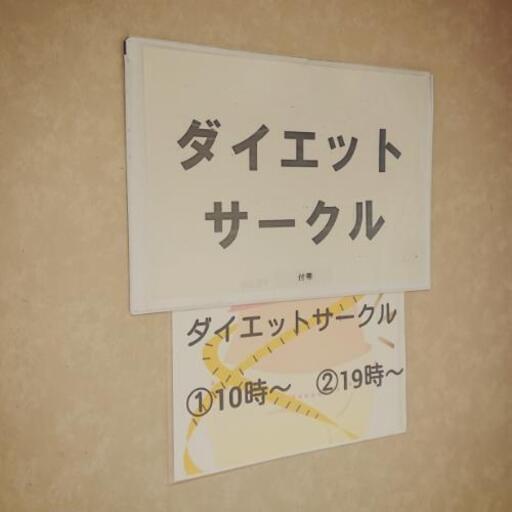 ダイエット
サークル
ダイエットサークル
①10時～ ②19時～